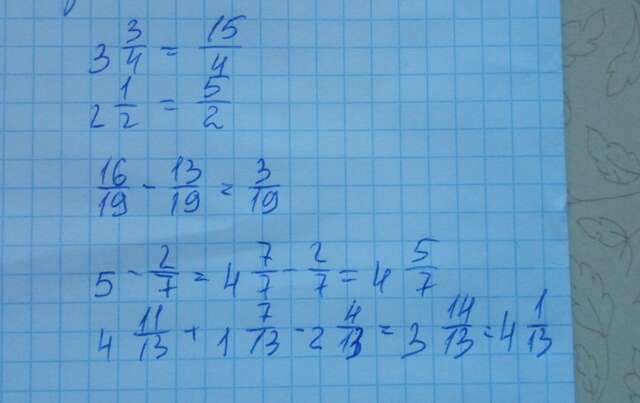 3 3/4 = 15/4
2 1/2 = 5/2
16/19 - 13/19 = 3/19
5 - 2/7 = 4 7/7 - 2/7 = 4 5/7
4 11/13 + 1 7/13 - 2 4/13 = 3 14/13 = 4 1/13